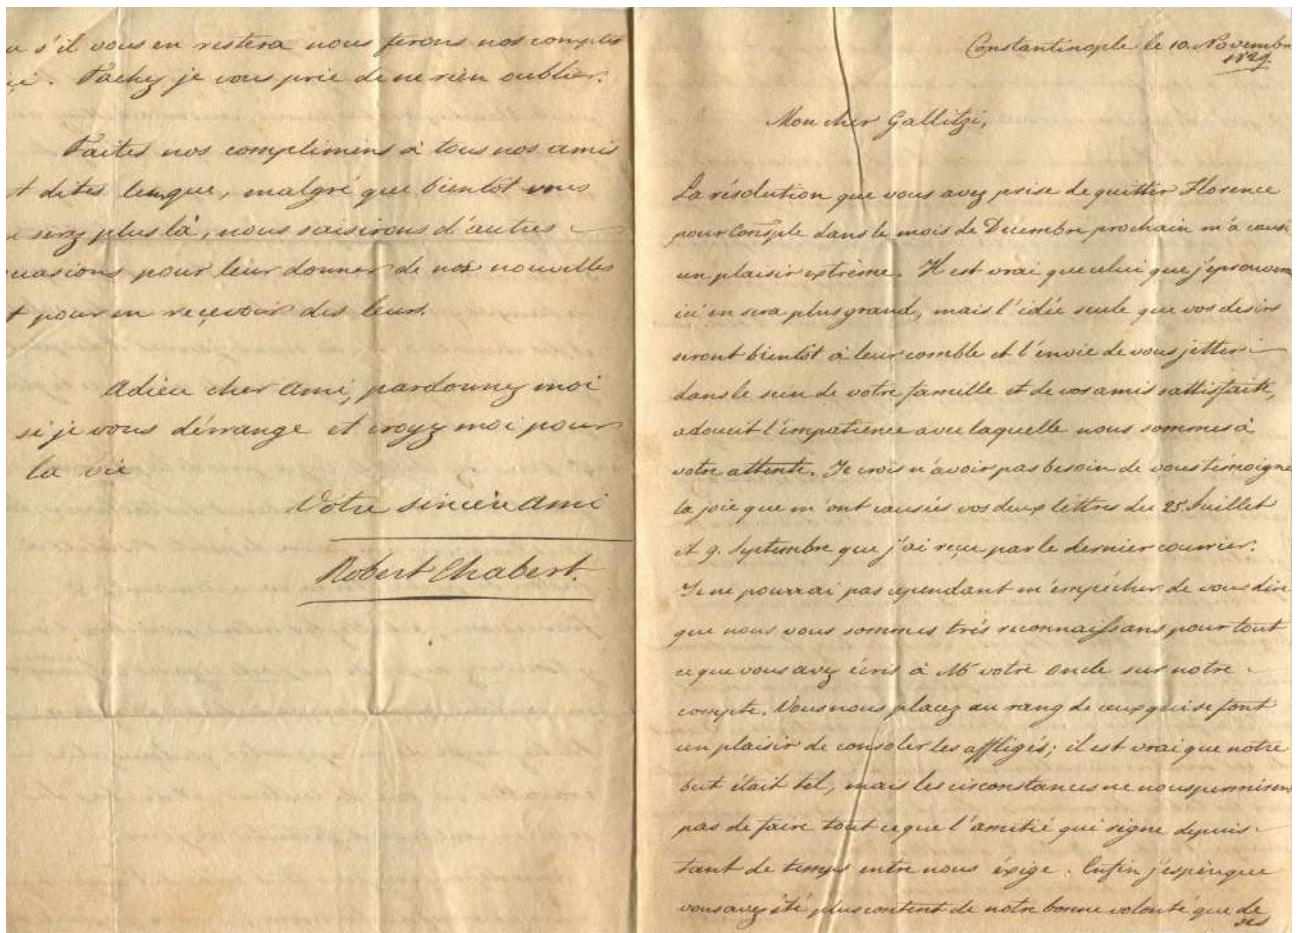 s'il vous en restera nous ferons nos comptes
ici. Tachez je vous prie de ne rien oublier.
Faites nos complimens à tous nos amis
et dites leur que, malgré que bientôt vous
serez plus là, nous saisirons d'autres
occasions pour leur donner de nos nouvelles
et pour en reçevoir des leurs.
Adieu cher ami, pardonnez moi
si je vous dérrange et croyez moi pour
la vie
Votre sincère ami
Robert Chabert.
Constantinople le 10. Novembre
1829.
Mon cher Gallitzi,
La résolution que vous avez prise de quitter Florence
pour Consple dans le mois de Décembre prochain m'a causé
un plaisir extrème. Il est vrai que celui que j'eprouverai
ici en sera plus grand, mais l'idée seule que vos desirs
seront bientôt à leur comble et l'envie de vous jetter
dans le sein de votre famille et de vos amis sattisfaite,
adoucit l'impatience avec laquelle nous sommes à
votre attente. Je crois n'avoir pas besoin de vous témoigner
la joie que m'ont causées vos deux lettres du 25. Juillet
et 9. Septembre que j'ai reçue par le dernier courrier.
Je ne pourrai pas cependant m'empécher de vous dire
que nous vous sommes trés reconnaissans pour tout
ce que vous avez écris à Mr votre oncle sur notre
compte. Vous nous placez au rang de ceux qui se font
un plaisir de consoler les affligés; il est vrai que notre
but était tel, mais les circonstances ne nous permirent
pas de faire tout ce que l'amitié qui signe depuis
tant de temps entre nous éxige. Enfin j'espère que
vous avez été plus content de notre bonne volonté que de
ses